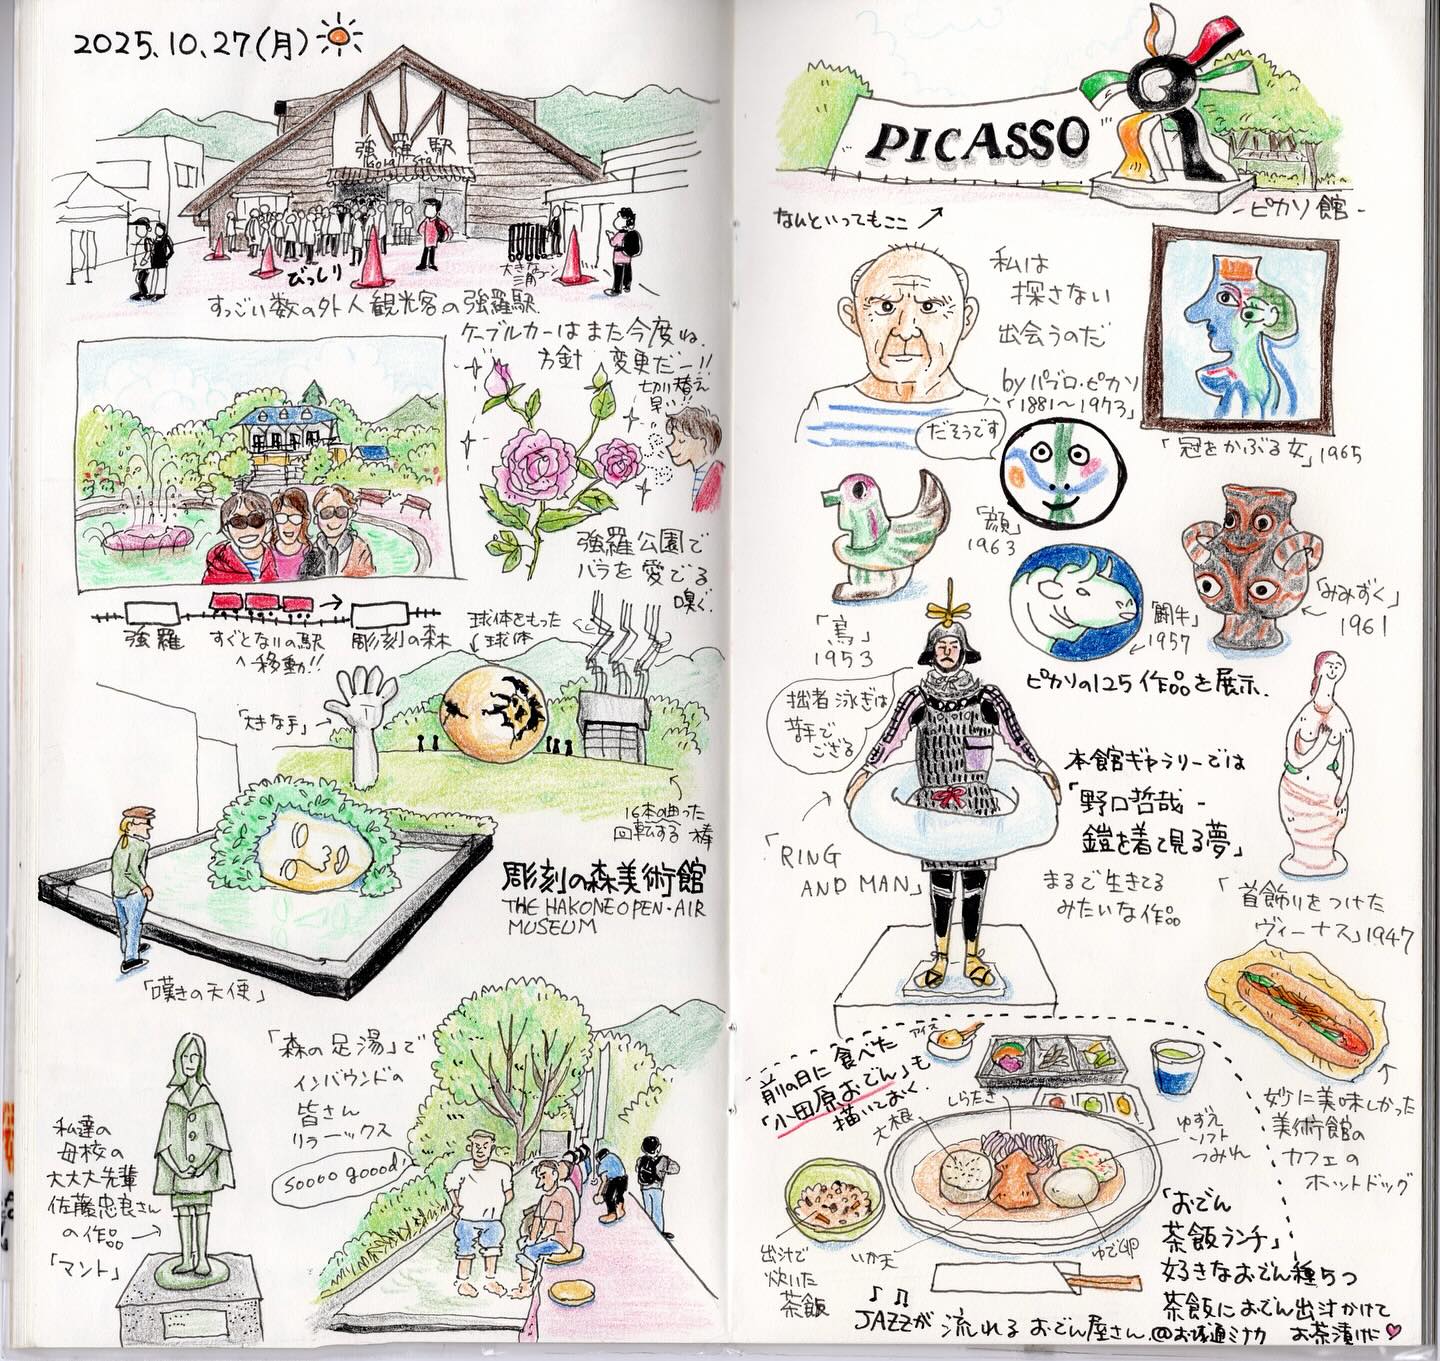 2025.10.27(月)
強羅駅
Gora Sta
びっしり
大きな
すっごい数の外人観光客の強羅駅
ケーブルカーはまた今度ね.
方針 変更だー!!
切り替え
早い!!
強羅公園で
バラを愛でる
嗅ぐ
強羅
すぐとなりの駅
へ移動!!
彫刻の森
球体をもった
球体
「大きな手」→
16本の曲った
回転する棒
彫刻の森美術館
THE HAKONE OPEN-AIR
MUSEUM
「嘆きの天使」
「森の足湯」で
インバウンドの
皆さん
リラーックス
Soooo goood!
私達の
母校の
大大大先輩
佐藤忠良さん
の作品→
「マント」
PICASSO
-ピカソ館-
なんといってもここ
私は
探さない
出会うのだ
byパブロ・ピカソ
「1881〜1973」
だそうです
「冠をかぶる女」1965
「顔」
1963
「鳥」
1953
「闘牛」
1957
「みみずく」
1961
ピカソの125作品を展示.
拙者 泳ぎは
苦手で
ござる
「RING
AND MAN」
本館ギャラリーでは
「野口哲哉-
鎧を着て見る夢」
まるで生きてる
みたいな作品
「首飾りをつけた
ヴィーナス」1947
妙に美味しかった
美術館の
カフェの
ホットドッグ
前の日に食べた
「小田原おでん」も
描いておく.
アイス
大根
しらたき
ゆずえ
ソフト
つみれ
いか天
ゆで卵
出汁で
炊いた
茶飯
「おでん
茶飯ランチ」
好きなおでん種5つ
茶飯におでん出汁かけて
お茶漬けに♡
JAZZが流れるおでん屋さん.@お堀通ミナカ